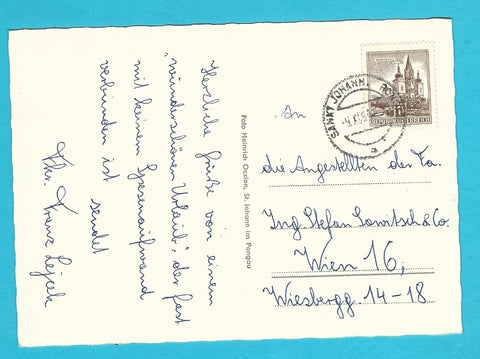 Herzliche Grüße von einem
"wunderschönen Urlaub", der fast
mit keinem
verbunden ist
sendet
Franz
Foto Heinrich Oczlon, St. Johann im Pongau
SANKT JOHANN
REPUBLIK ÖSTERREICH
An
die Angestellten der Fa.
Ing. Stefan Sowitsch & Co.
Wien 16,
Wiesbergg. 14-18